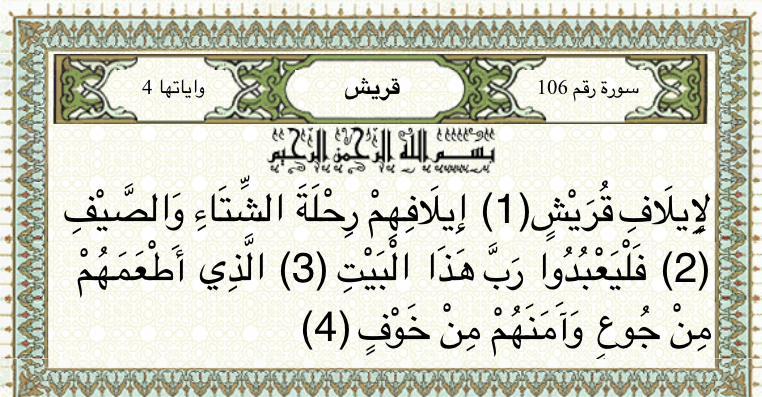 سورة رقم 106 قريش واياتها 4
بسم الله الرحمن الرحيم
لِإِيلَافِ قُرَيْشٍ (1) إِيلَافِهِمْ رِحْلَةَ الشِّتَاءِ وَالصَّيْفِ
(2) فَلْيَعْبُدُوا رَبَّ هَذَا الْبَيْتِ (3) الَّذِي أَطْعَمَهُمْ
مِنْ جُوعٍ وَآَمَنَهُمْ مِنْ خَوْفٍ (4)